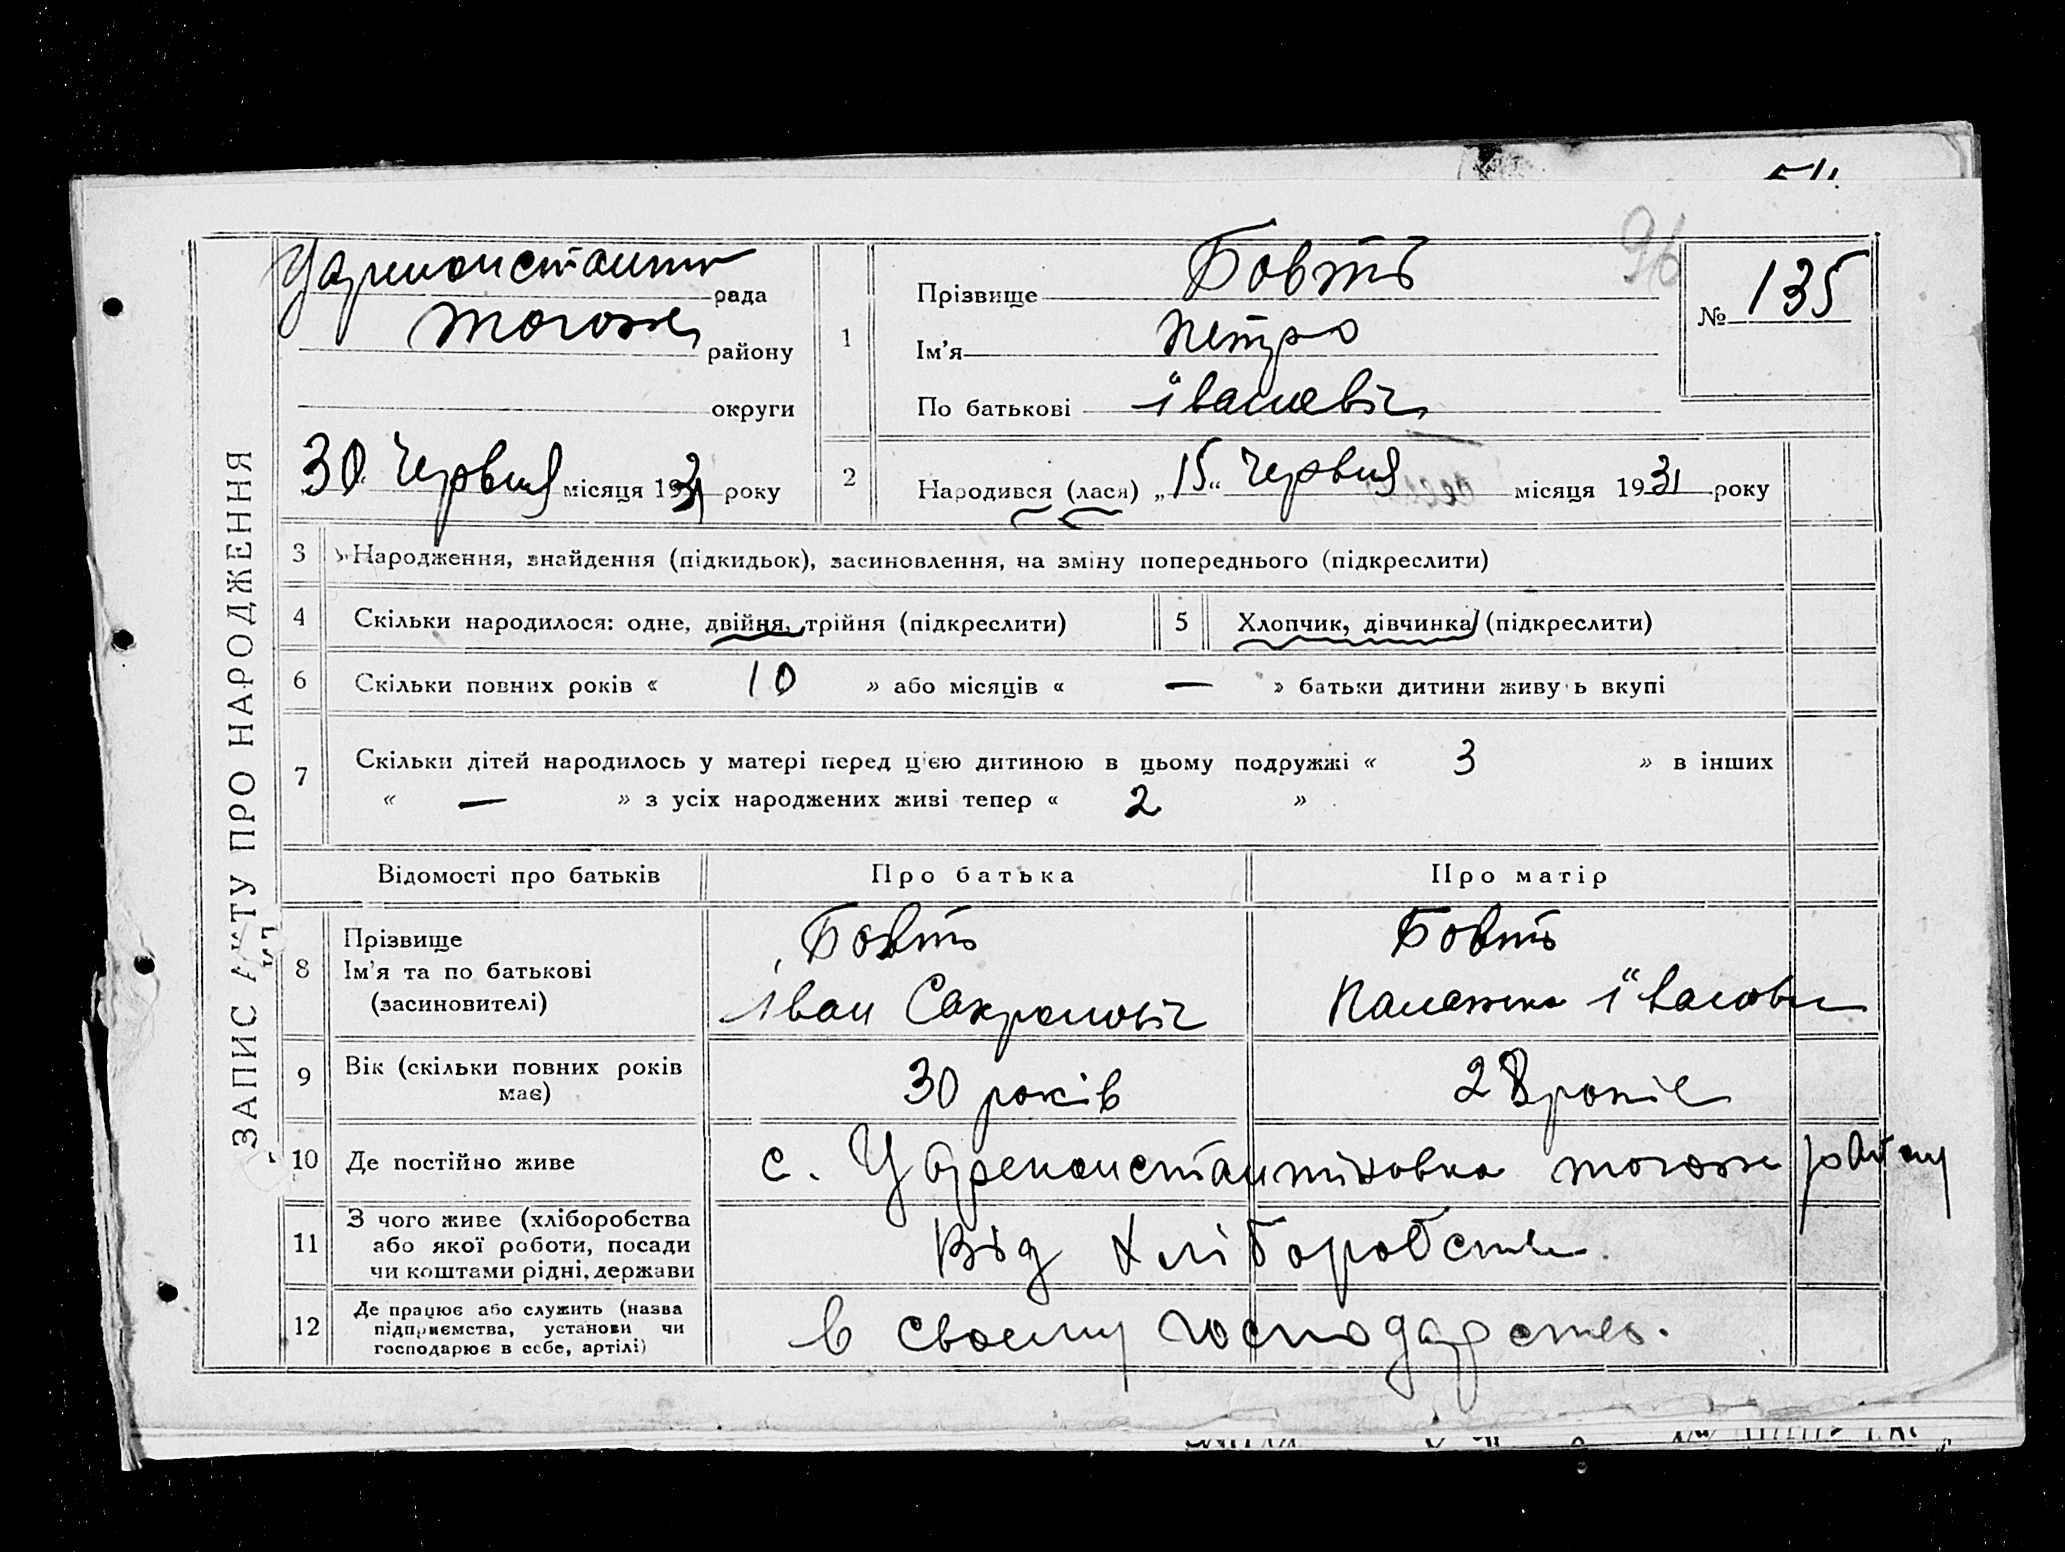 96
ЗАПИС АКТУ ПРО НАРОДЖЕННЯ
Цареконстант рада
району
округи
30 Червня місяця 1931 року
1
Прізвище Бовть
Ім'я Петро
По батькові Іванович
№ 135
2
Народився (лася) „15“ Червня місяця 1931 року
3
Народження, знайдення (підкидьок), засиновлення, на зміну попереднього (підкреслити)
4
Скільки народилося: одне, двійня, трійня (підкреслити)
5
Хлопчик, дівчинка (підкреслити)
6
Скільки повних років « 10 » або місяців « — » батьки дитини живуть вкупі
7
Скільки дітей народилось у матері перед цією дитиною в цьому подружжі « 3 » в інших
« — » з усіх народжених живі тепер « 2 »
Відомості про батьків
Про батька
Про матір
8
Прізвище
Ім'я та по батькові
(засиновителі)
Бовть
Іван
Бовть
9
Вік (скільки повних років
має)
30 років
28 років
10
Де постійно живе
с. Цареконстантіновка району
11
З чого живе (хліборобства
або якої роботи, посади
чи коштами рідні, держави
Від хліборобства
12
Де працює або служить (назва
підприємства, установи чи
господарює в себе, артілі)
в своєму господарстві.